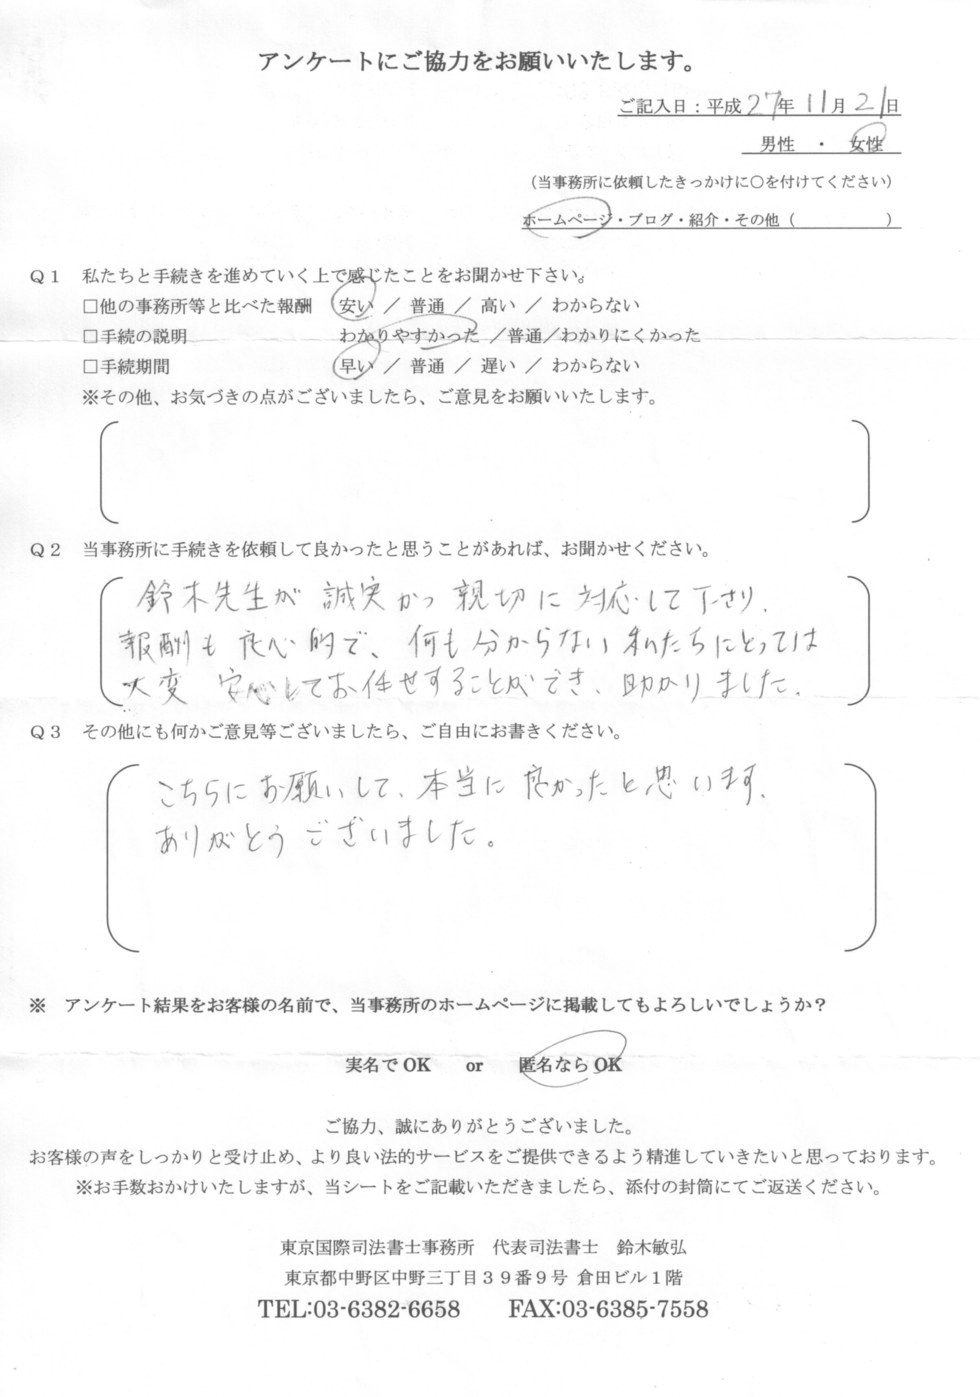 アンケートにご協力をお願いいたします。
ご記入日：平成27年11月21日
男性　・　女性
（当事務所に依頼したきっかけに○を付けてください）
ホームページ・ブログ・紹介・その他（　　　　　）
Ｑ１　私たちと手続きを進めていく上で感じたことをお聞かせ下さい。
□他の事務所等と比べた報酬　安い ／ 普通 ／ 高い ／ わからない
□手続の説明　わかりやすかった ／普通／わかりにくかった
□手続期間　早い ／ 普通 ／ 遅い ／ わからない
※その他、お気づきの点がございましたら、ご意見をお願いいたします。
Ｑ２　当事務所に手続きを依頼して良かったと思うことがあれば、お聞かせください。
鈴木先生が 誠実かつ親切に 対応して下さり、
報酬も良心的で、何も分からない私たちにとっては
大変 安心してお任せすることができ、助かりました。
Ｑ３　その他にも何かご意見等ございましたら、ご自由にお書きください。
こちらにお願いして、本当に良かったと思います。
ありがとうございました。
※　アンケート結果をお客様の名前で、当事務所のホームページに掲載してもよろしいでしょうか？
実名で OK　or　匿名なら OK
ご協力、誠にありがとうございました。
お客様の声をしっかりと受け止め、より良い法的サービスをご提供できるよう精進していきたいと思っております。
※お手数おかけいたしますが、当シートをご記載いただきましたら、添付の封筒にてご返送ください。
東京国際司法書士事務所　代表司法書士　鈴木敏弘
東京都中野区中野三丁目３９番９号 倉田ビル１階
TEL:03-6382-6658　FAX:03-6385-7558